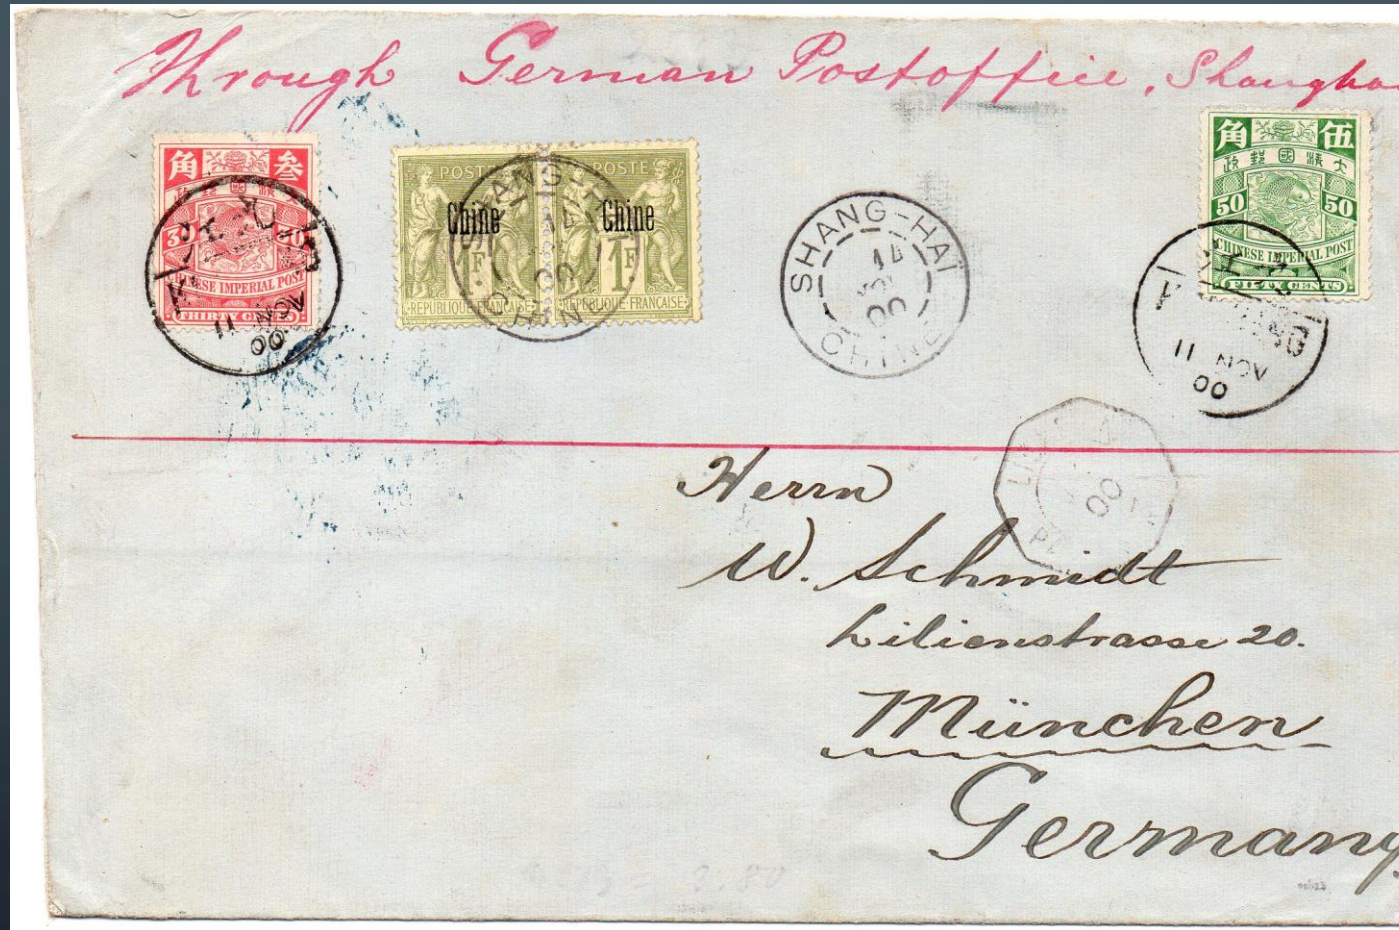 Through German Postoffice, Shangha
角 叁
30 30
CHINESE IMPERIAL POST
THIRTY CENTS
POSTE
Chine
1F
REPUBLIQUE FRANÇAISE
POSTE
Chine
1F
REPUBLIQUE FRANÇAISE
SHANG-HAÏ
14
NOV
00
CHINE
角 伍
政郵國清大
50 50
CHINESE IMPERIAL POST
FIFTY CENTS
11 NOV
00
11 NOV
00
00
Herrn
W. Schmidt
Lilienstrasse 20.
München
Germany